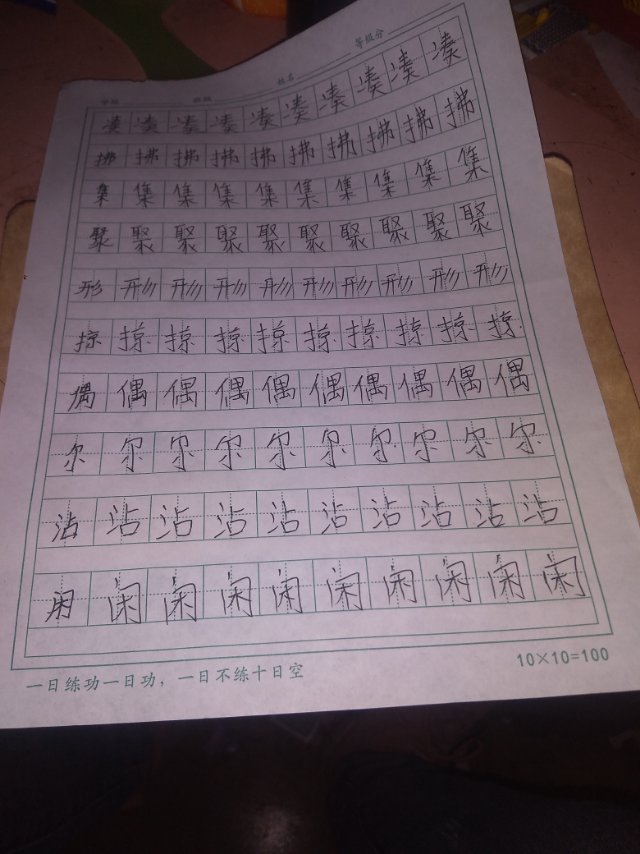 班级 姓名 等级分
凑凑凑凑凑凑凑凑凑凑
拂拂拂拂拂拂拂拂拂拂
集集集集集集集集集集
聚聚聚聚聚聚聚聚聚聚
形形形形形形形形形形
掠掠掠掠掠掠掠掠掠掠
偶偶偶偶偶偶偶偶偶偶
尔尔尔尔尔尔尔尔尔尔
沾沾沾沾沾沾沾沾沾沾
闲闲闲闲闲闲闲闲闲闲
一日练功一日功，一日不练十日空
10×10=100